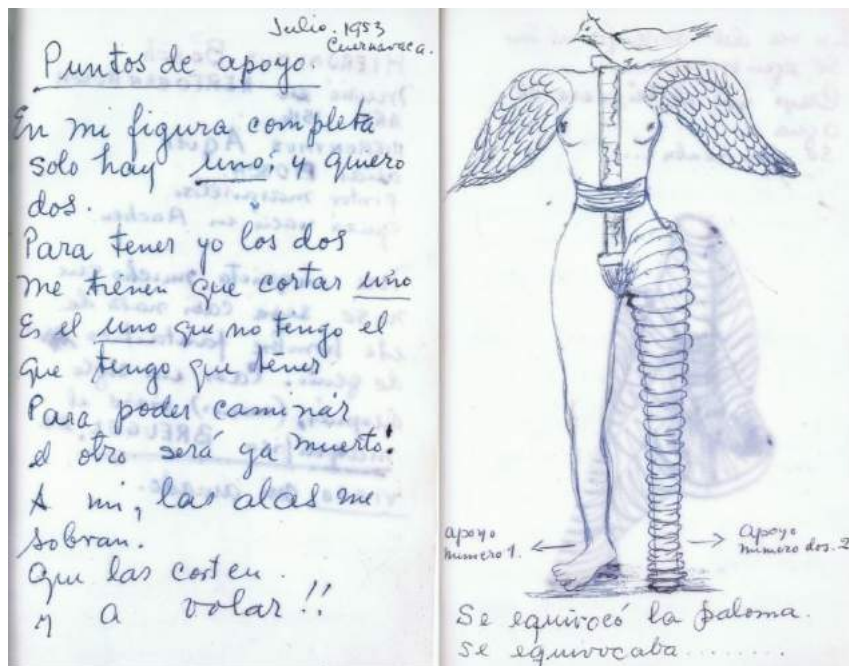 Julio. 1953
Cuernavaca.
Puntos de apoyo.
En mi figura completa
solo hay uno; y quiero
dos.
Para tener yo los dos
me tienen que cortar uno
Es el uno que no tengo el
que tengo que tener
Para poder caminar
el otro será ya muerto!
A mi, las alas me
sobran.
Que las corten.
y a volar!!
apoyo
numero 1.
apoyo
numero dos. 2
Se equivocó la paloma.
se equivocaba........